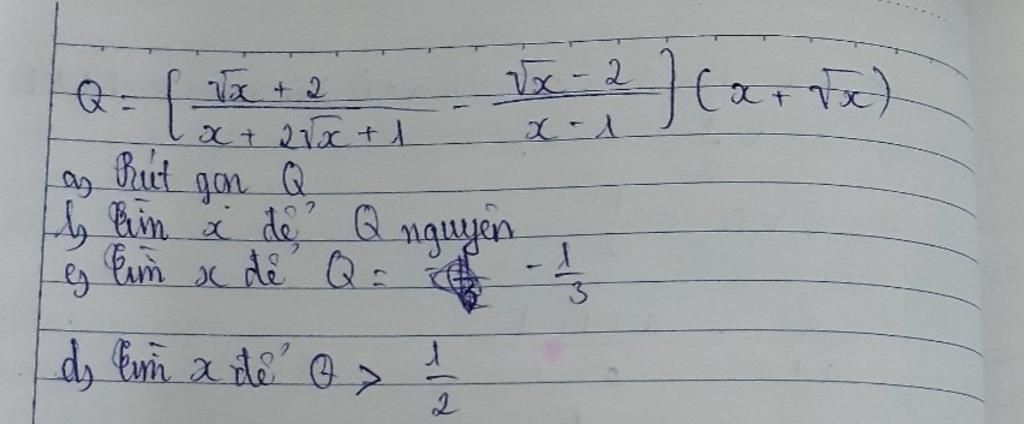 Q = [ (√x + 2)/(x + 2√x + 1) - (√x - 2)/(x - 1) ] (x + √x)
a, Rút gọn Q
b, tìm x để Q nguyên
c, tìm x để Q = - 1/3
d, tìm x để Q > 1/2